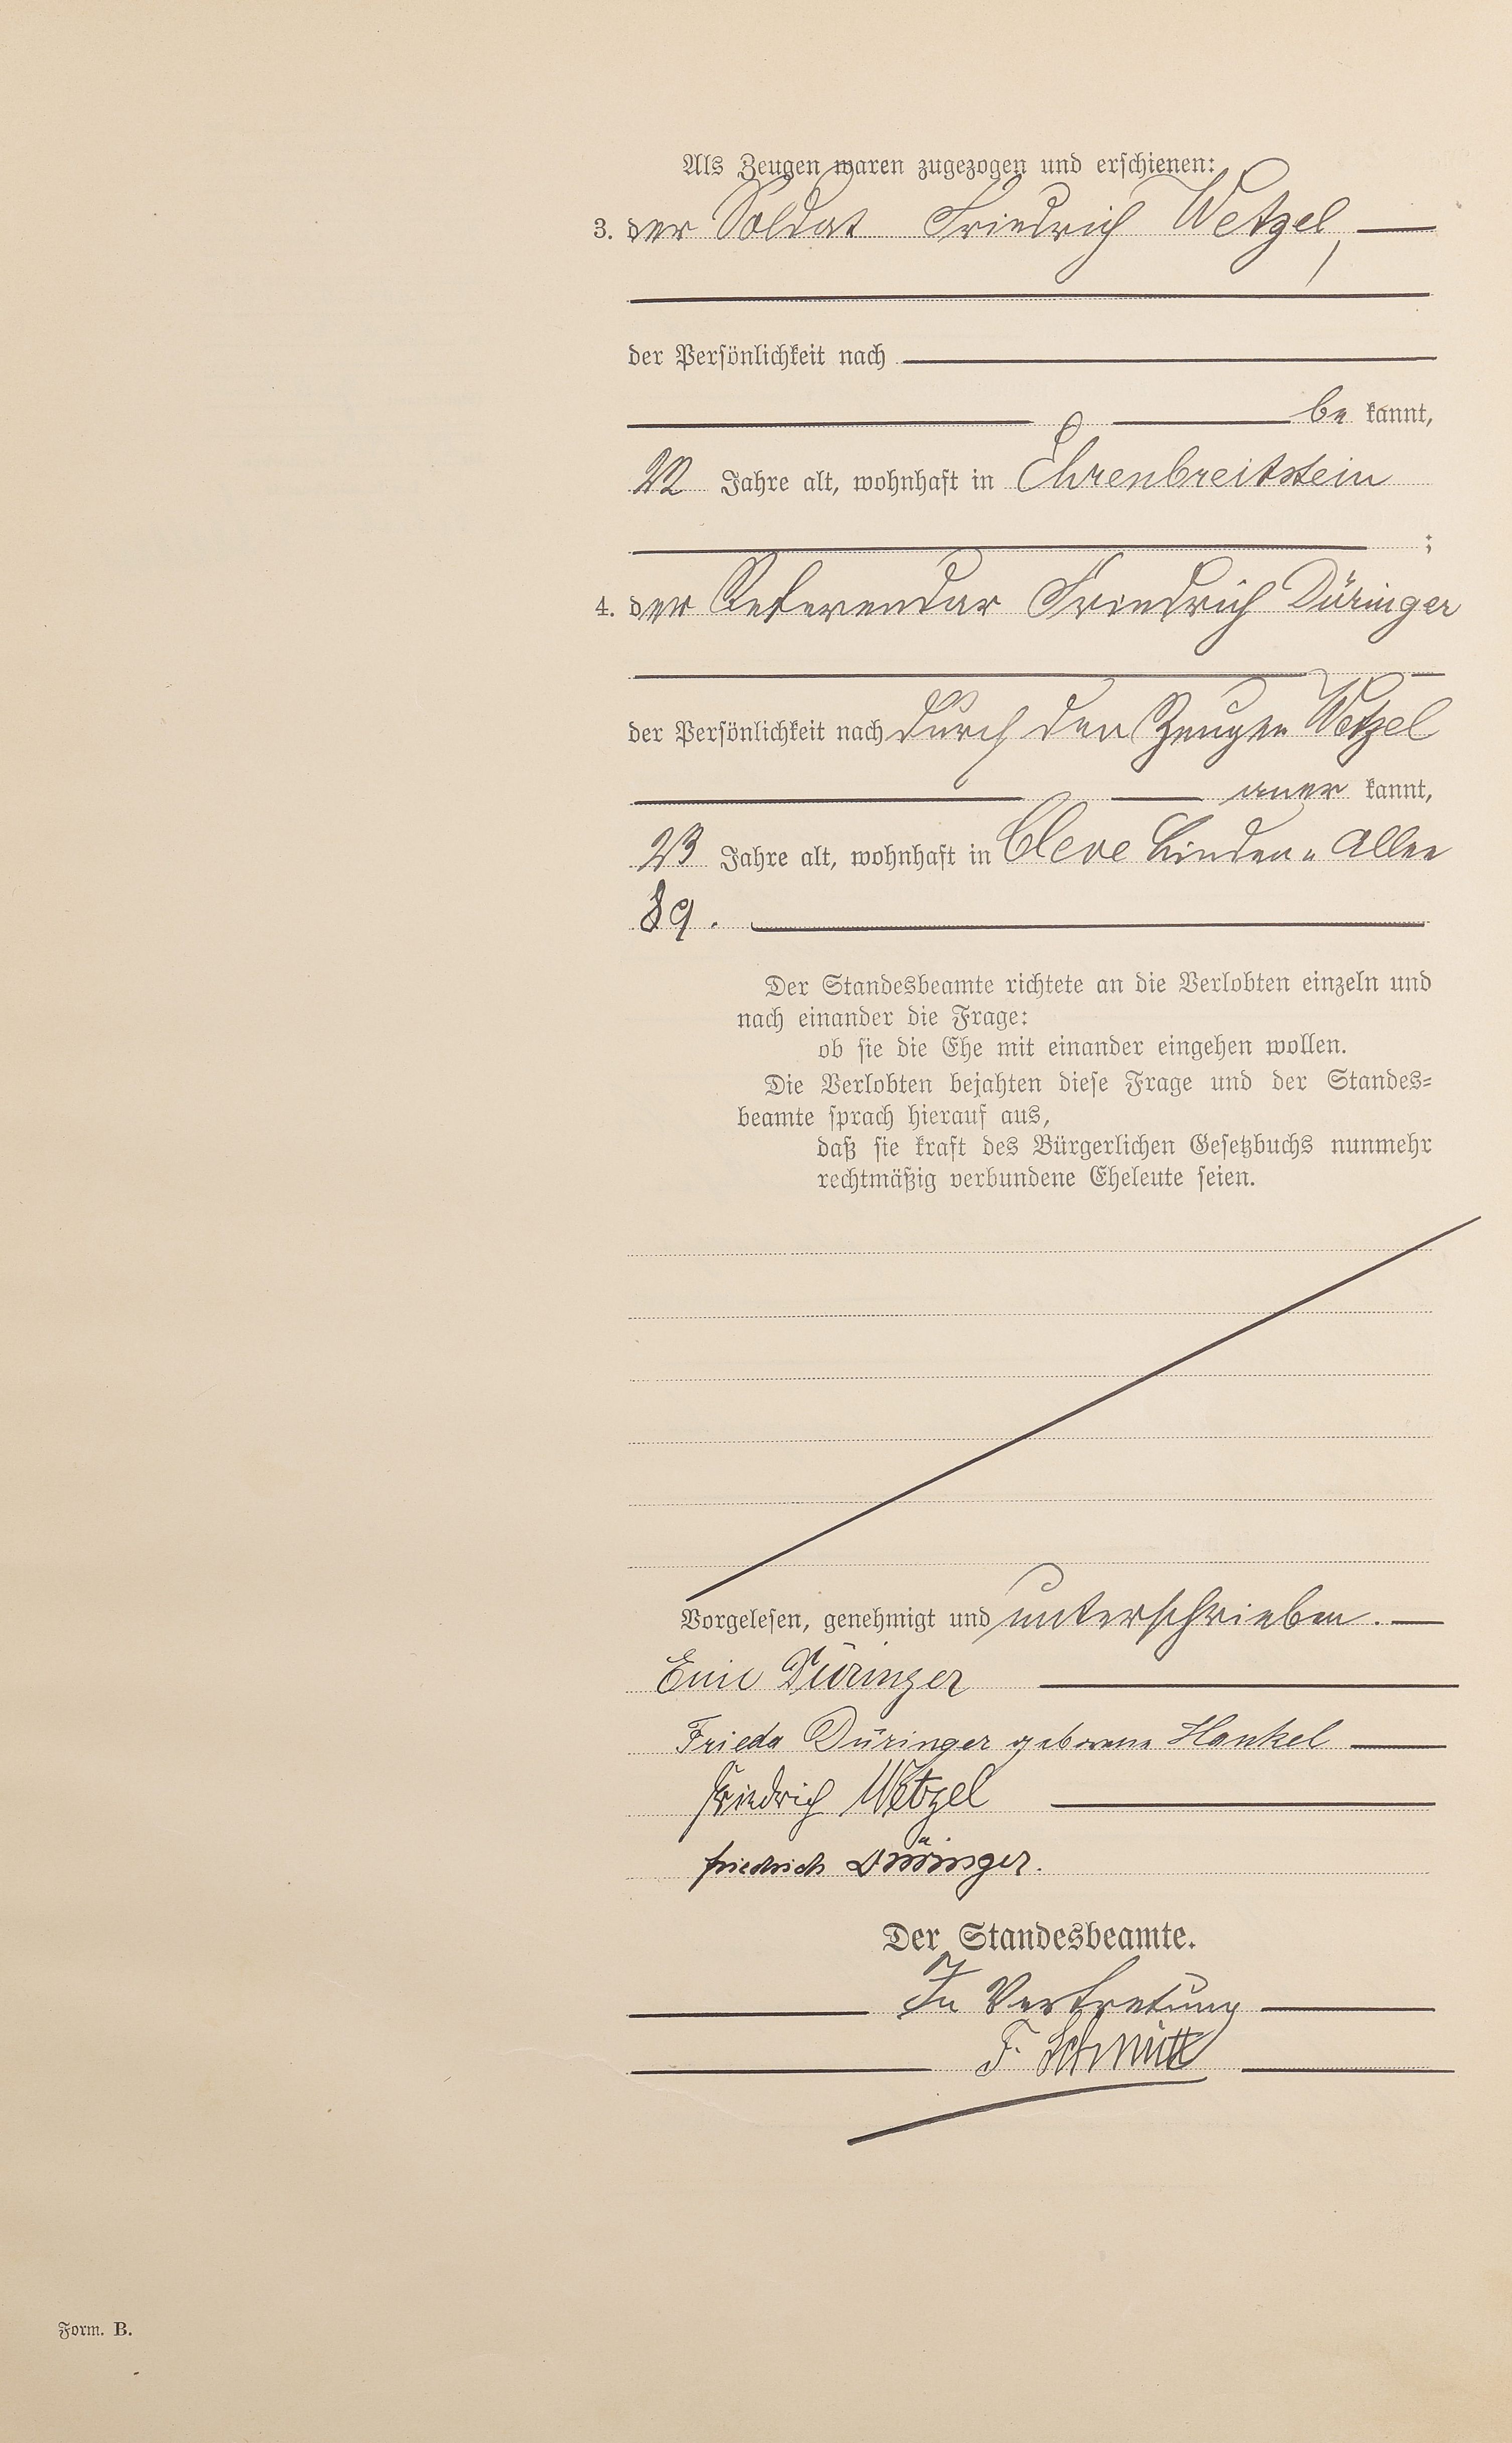 Als Zeugen waren zugezogen und erschienen:
3. der Soldat Friedrich Wetzel,
der Persönlichkeit nach
be kannt,
22 Jahre alt, wohnhaft in Ehrenbreitstein
;
4. der Referendar Friedrich Düringer
der Persönlichkeit nach durch den Zeugen Wetzel
aner kannt,
23 Jahre alt, wohnhaft in Cleve Linden-Allee
89.
Der Standesbeamte richtete an die Verlobten einzeln und
nach einander die Frage:
ob sie die Ehe mit einander eingehen wollen.
Die Verlobten bejahten diese Frage und der Standes-
beamte sprach hierauf aus,
daß sie kraft des Bürgerlichen Gesetzbuchs nunmehr
rechtmäßig verbundene Eheleute seien.
Vorgelesen, genehmigt und unterschrieben.
Düringer
Frieda Düringer geborene Hankel
Friedrich Wetzel
Friedrich Düringer.
Der Standesbeamte.
In Vertretung
F. Schmitt
Form. B.